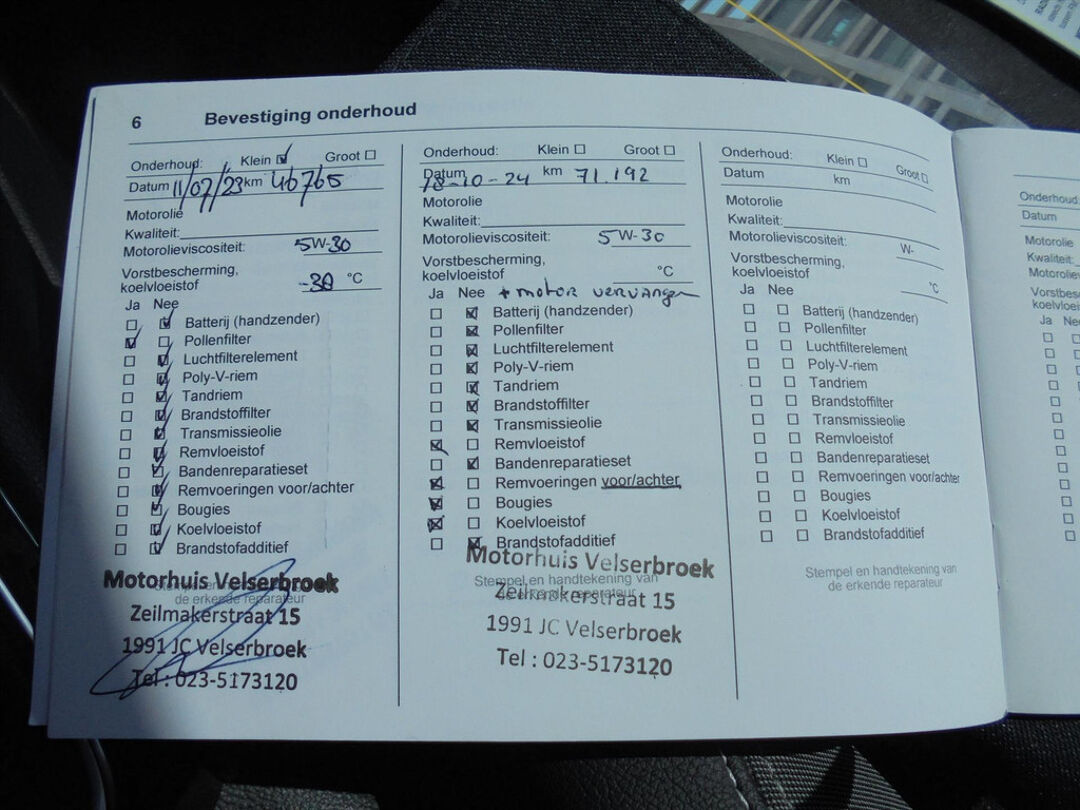 6 Bevestiging onderhoud
Onderhoud: Klein Groot
Datum 11/07/23 km 46765
Motorolie
Kwaliteit:
Motorolieviscositeit: 5W-30
Vorstbescherming,
koelvloeistof -30 °C
Ja Nee
Batterij (handzender)
Pollenfilter
Luchtfilterelement
Poly-V-riem
Tandriem
Brandstoffilter
Transmissieolie
Remvloeistof
Bandenreparatieset
Remvoeringen voor/achter
Bougies
Koelvloeistof
Brandstofadditief
Stempel en handtekening van
de erkende reparateur
Motorhuis Velserbroek
Zeilmakerstraat 15
1991 JC Velserbroek
Tel : 023-5173120
Onderhoud: Klein Groot
Datum 18-10-24 km 71.192
Motorolie
Kwaliteit:
Motorolieviscositeit: 5W-30
Vorstbescherming,
koelvloeistof °C
Ja Nee + motor vervangen
Batterij (handzender)
Pollenfilter
Luchtfilterelement
Poly-V-riem
Tandriem
Brandstoffilter
Transmissieolie
Remvloeistof
Bandenreparatieset
Remvoeringen voor/achter
Bougies
Koelvloeistof
Brandstofadditief
Stempel en handtekening van
de erkende reparateur
Motorhuis Velserbroek
Zeilmakerstraat 15
1991 JC Velserbroek
Tel : 023-5173120
Onderhoud: Klein Groot
Datum km
Motorolie
Kwaliteit:
Motorolieviscositeit: W-
Vorstbescherming,
koelvloeistof °C
Ja Nee
Batterij (handzender)
Pollenfilter
Luchtfilterelement
Poly-V-riem
Tandriem
Brandstoffilter
Transmissieolie
Remvloeistof
Bandenreparatieset
Remvoeringen voor/achter
Bougies
Koelvloeistof
Brandstofadditief
Stempel en handtekening van
de erkende reparateur
Onderhoud
Datum
Motorolie
Kwaliteit:
Ja